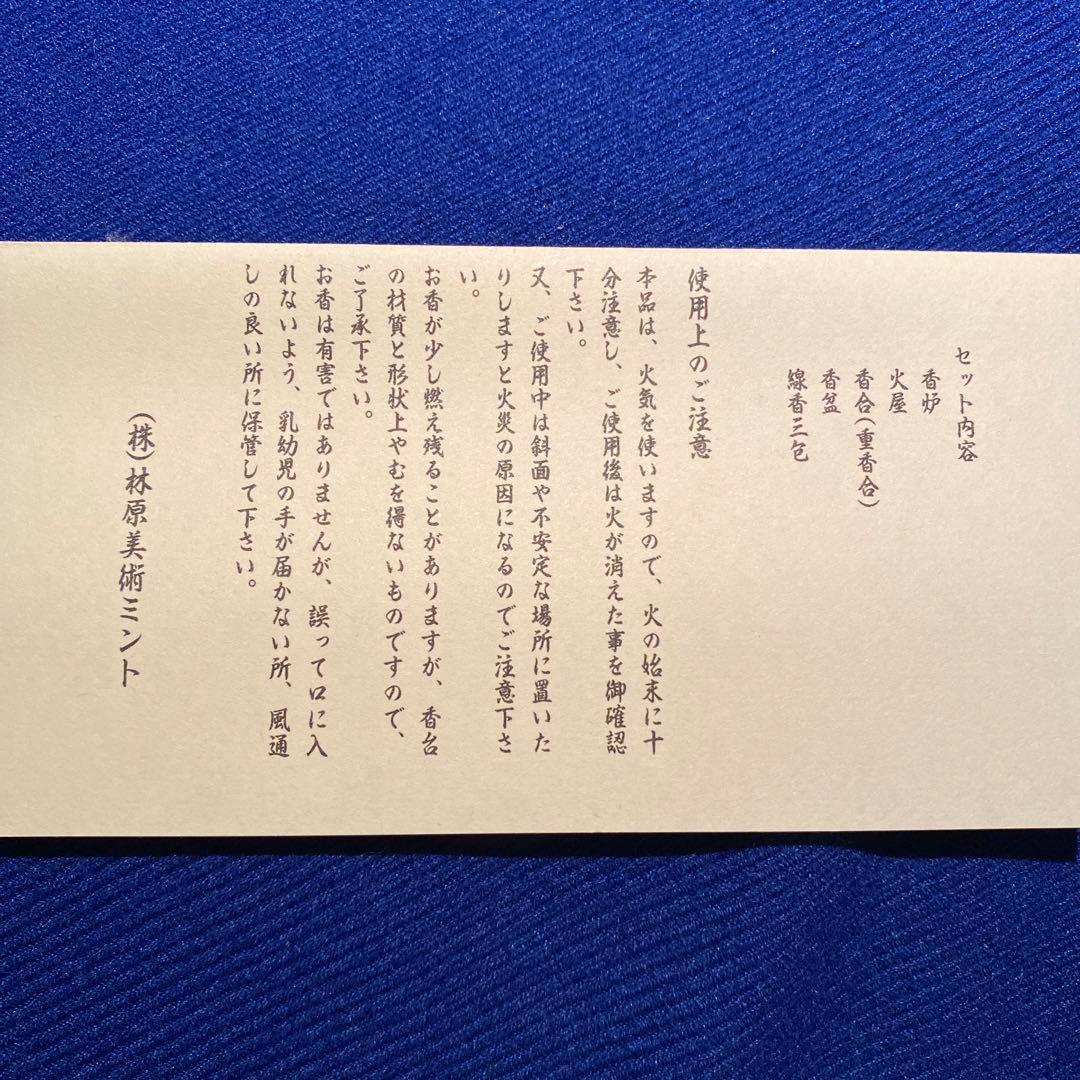 セット内容
香炉
火屋
香合(重香合)
香盆
線香三包
使用上のご注意
本品は、火気を使いますので、火の始末に十
分注意し、ご使用後は火が消えた事を御確認
下さい。
又、ご使用中は斜面や不安定な場所に置いた
りしますと火災の原因になるのでご注意下さ
い。
お香が少し燃え残ることがありますが、香台
の材質と形状上やむを得ないものですので、
ご了承下さい。
お香は有害ではありませんが、誤って口に入
れないよう、乳幼児の手が届かない所、風通
しの良い所に保管して下さい。
(株)林原美術ミント